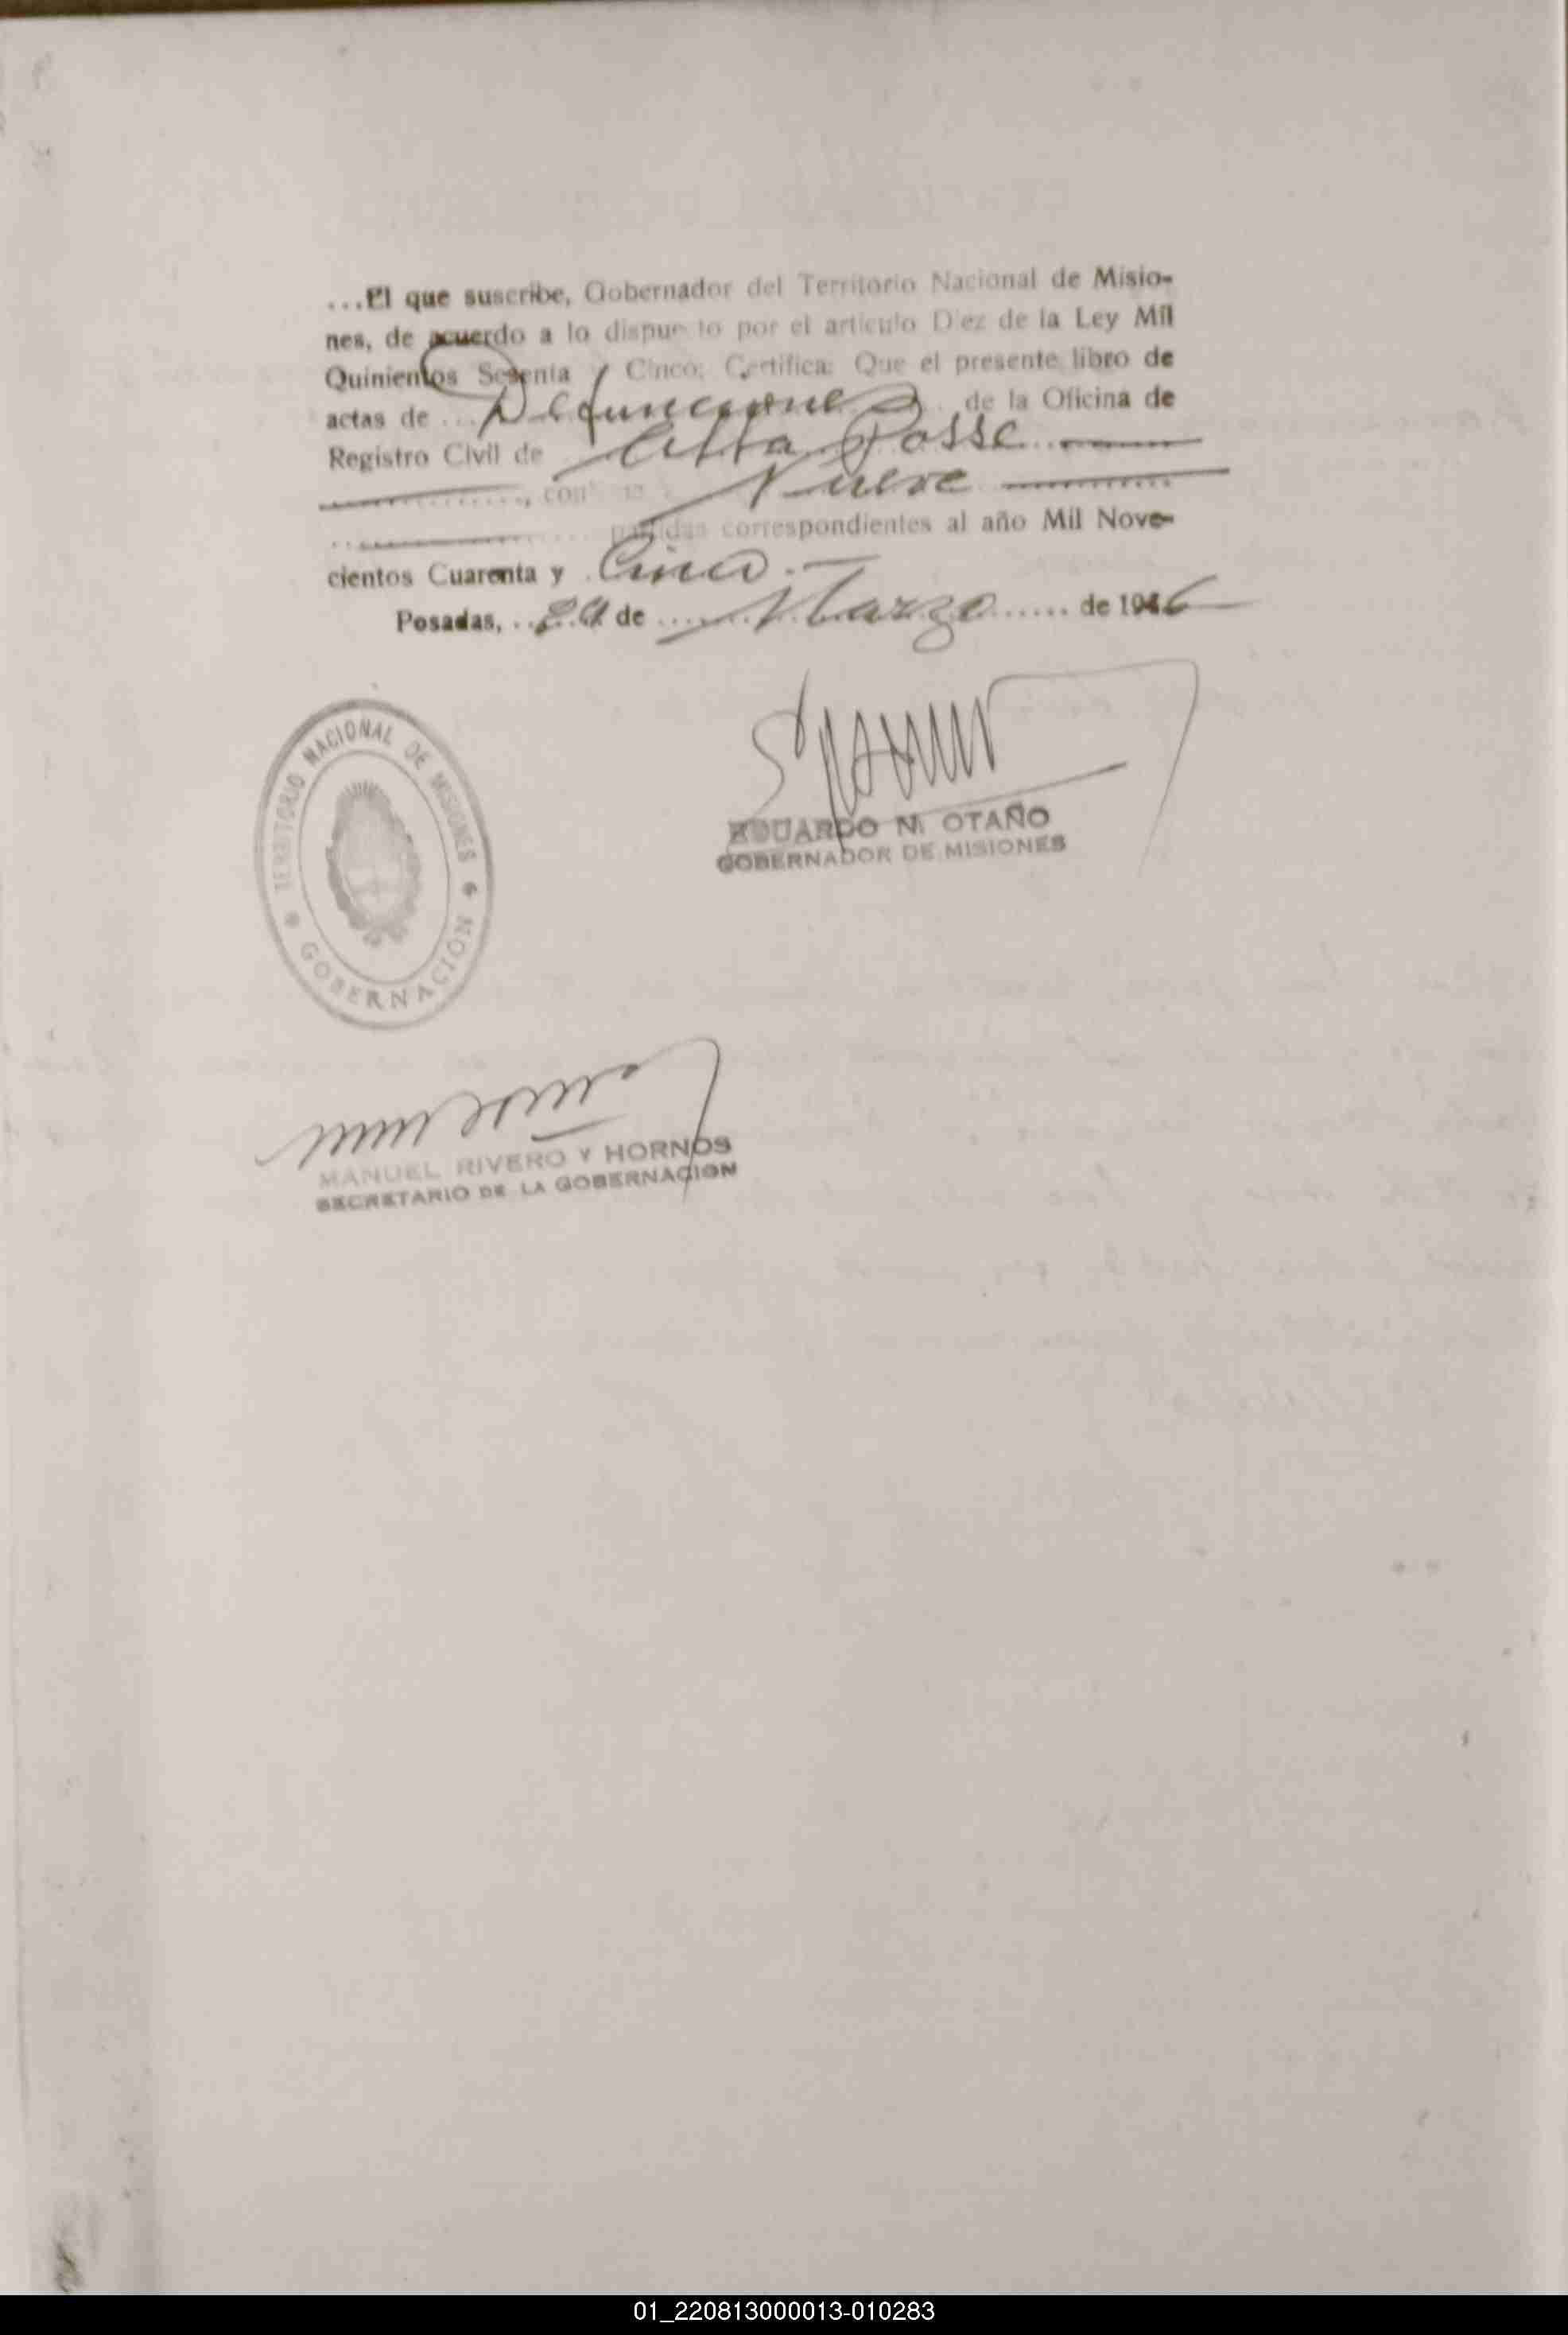 ...El que suscribe, Gobernador del Territorio Nacional de Misio-
nes, de acuerdo a lo dispuesto por el artículo Diez de la Ley Mil
Quinientos Sesenta y Cinco; Certifica: Que el presente libro de
actas de ... Defunciones ... de la Oficina de
Registro Civil de Alba Posse
............, contiene Nueve ............
............ partidas correspondientes al año Mil Nove-
cientos Cuarenta y Cinco.-
Posadas, ... 29 de ...... Marzo ...... de 1946
TERRITORIO NACIONAL DE MISIONES
GOBERNACIÓN
EDUARDO N. OTAÑO
GOBERNADOR DE MISIONES
MANUEL RIVERO Y HORNOS
SECRETARIO DE LA GOBERNACION
01_220813000013-010283